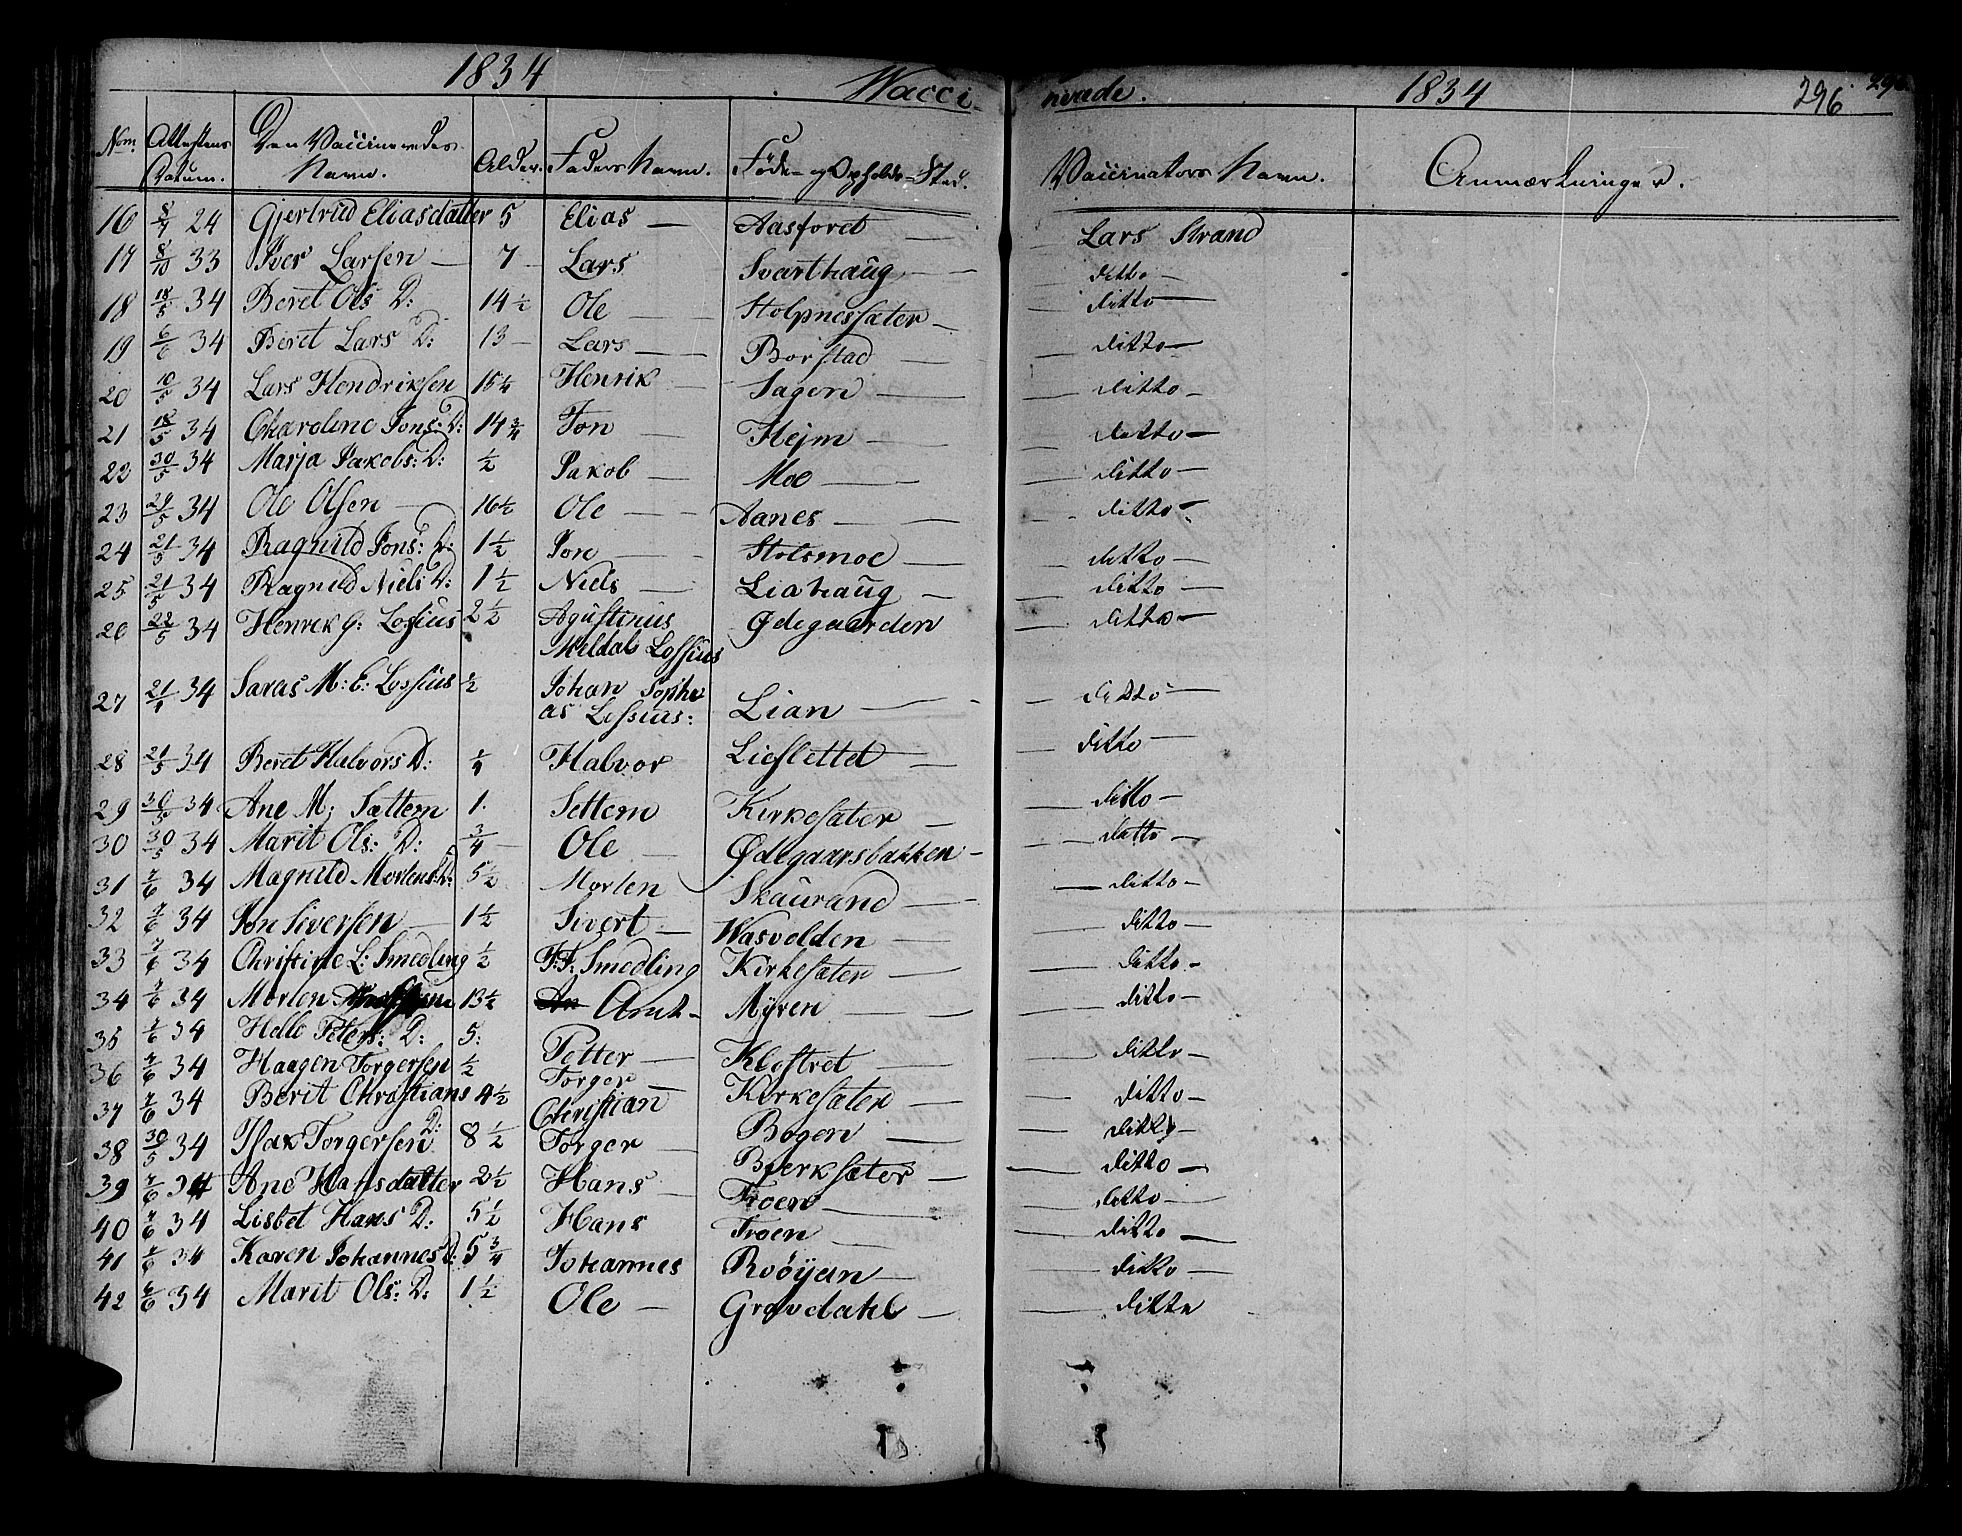 1834 Wacci- nerede. 1834 296
Nom. Attestens Datum. Den Vaccineredes Navn. Alder. Faders Navn. Føde- og Opholds-Sted. Vaccinators Navn. Anmærkninger.
16 8/7 24 Gjertrud Eliasdatter 5 Elias — Aasforet — Lars Strand
17 8/10 33 Iver Larsen — 7 Lars Svarthaug — ditto —
18 18/5 34 Beret Ols D: 14 1/2 Ole — Stolpnessæter — ditto —
19 6/6 34 Beret Lars D: 13 — Lars — Borstad — ditto —
20 10/5 34 Lars Hendriksen 15 1/4 Henrik — Sagen — ditto —
21 18/5 34 Charoline Jons: D: 14 3/4 Jon — Hejm — ditto —
22 30/5 34 Marja Jakobs: D: 1/2 Jakob — Moe — ditto —
23 24/5 34 Ole Olsen — 16 1/2 Ole — Aanes — ditto —
24 21/5 34 Ragnild Jons: D: 1 1/2 Jon — Stolsmoe — ditto —
25 21/5 34 Ragnild Niels D: 1 1/2 Niels — Liahaug — ditto —
26 22/5 34 Henrek G: Lossius 2 1/2 Agustinus Meldal Lossius Ødegaarden — ditto —
27 21/4 34 Saras M: E: Lossius 1/2 Johan Sopheas Lossius: Lian — ditto —
28 21/5 34 Beret Halvors D: 1/4 Halvor Lieslettet — ditto —
29 30/5 34 Ane M; Sættem 1. Settem Kirkesæter — ditto —
30 30/5 34 Marit Ols: D: 3/4 — Ole — Ødegaarsbakken — ditto —
31 7/6 34 Magnild Mortens: D: 5 1/2 Morten Skaurand — ditto —
32 7/6 34 Jon Siversen — 1 1/2 Sivert — Wasvolden — ditto —
33 7/6 34 Christine L: Smedling 1/2 F: F: Smedling Kirkesæter — ditto —
34 7/6 34 Morten 13 1/2 Arnt — Myren — ditto —
35 7/6 34 Helle Peters: D: 5: Petter — Klostret — ditto —
36 7/6 34 Haagen Torgersen 1/2 Torger — Kirkesæter — ditto —
37 7/6 34 Berit Christians D: 4 1/2 Christian Bogen — ditto —
38 30/5 34 Isak Torgersen 8 1/2 Torger — Bjerksæter — ditto —
39 7/6 34 Ane Hansdatter 2 1/2 Hans — Troen — ditto —
40 7/6 34 Lisbet Hans D: 5 1/2 Hans Troen — ditto —
41 7/6 34 Karen Johannes D: 5 3/4 Johannes Roøyen — ditto —
42 6/6 34 Marit Ols: D: 1 1/2 Ole — Grovdahl — ditto